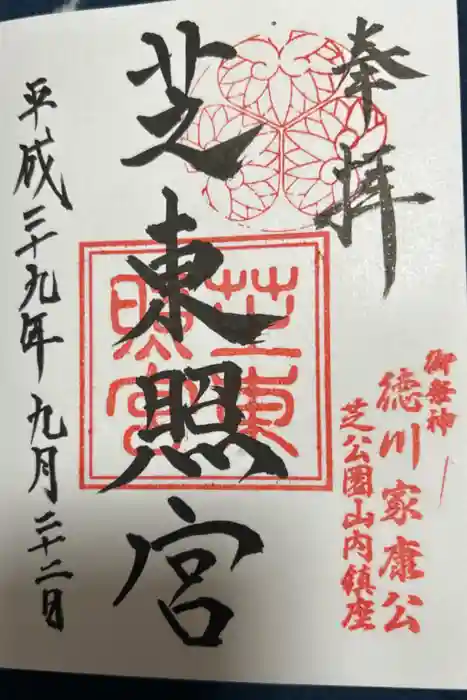 奉拝
御祭神
徳川家康公
芝公園山内鎮座
芝東照宮
芝東
照宮
平成二十九年九月二十二日